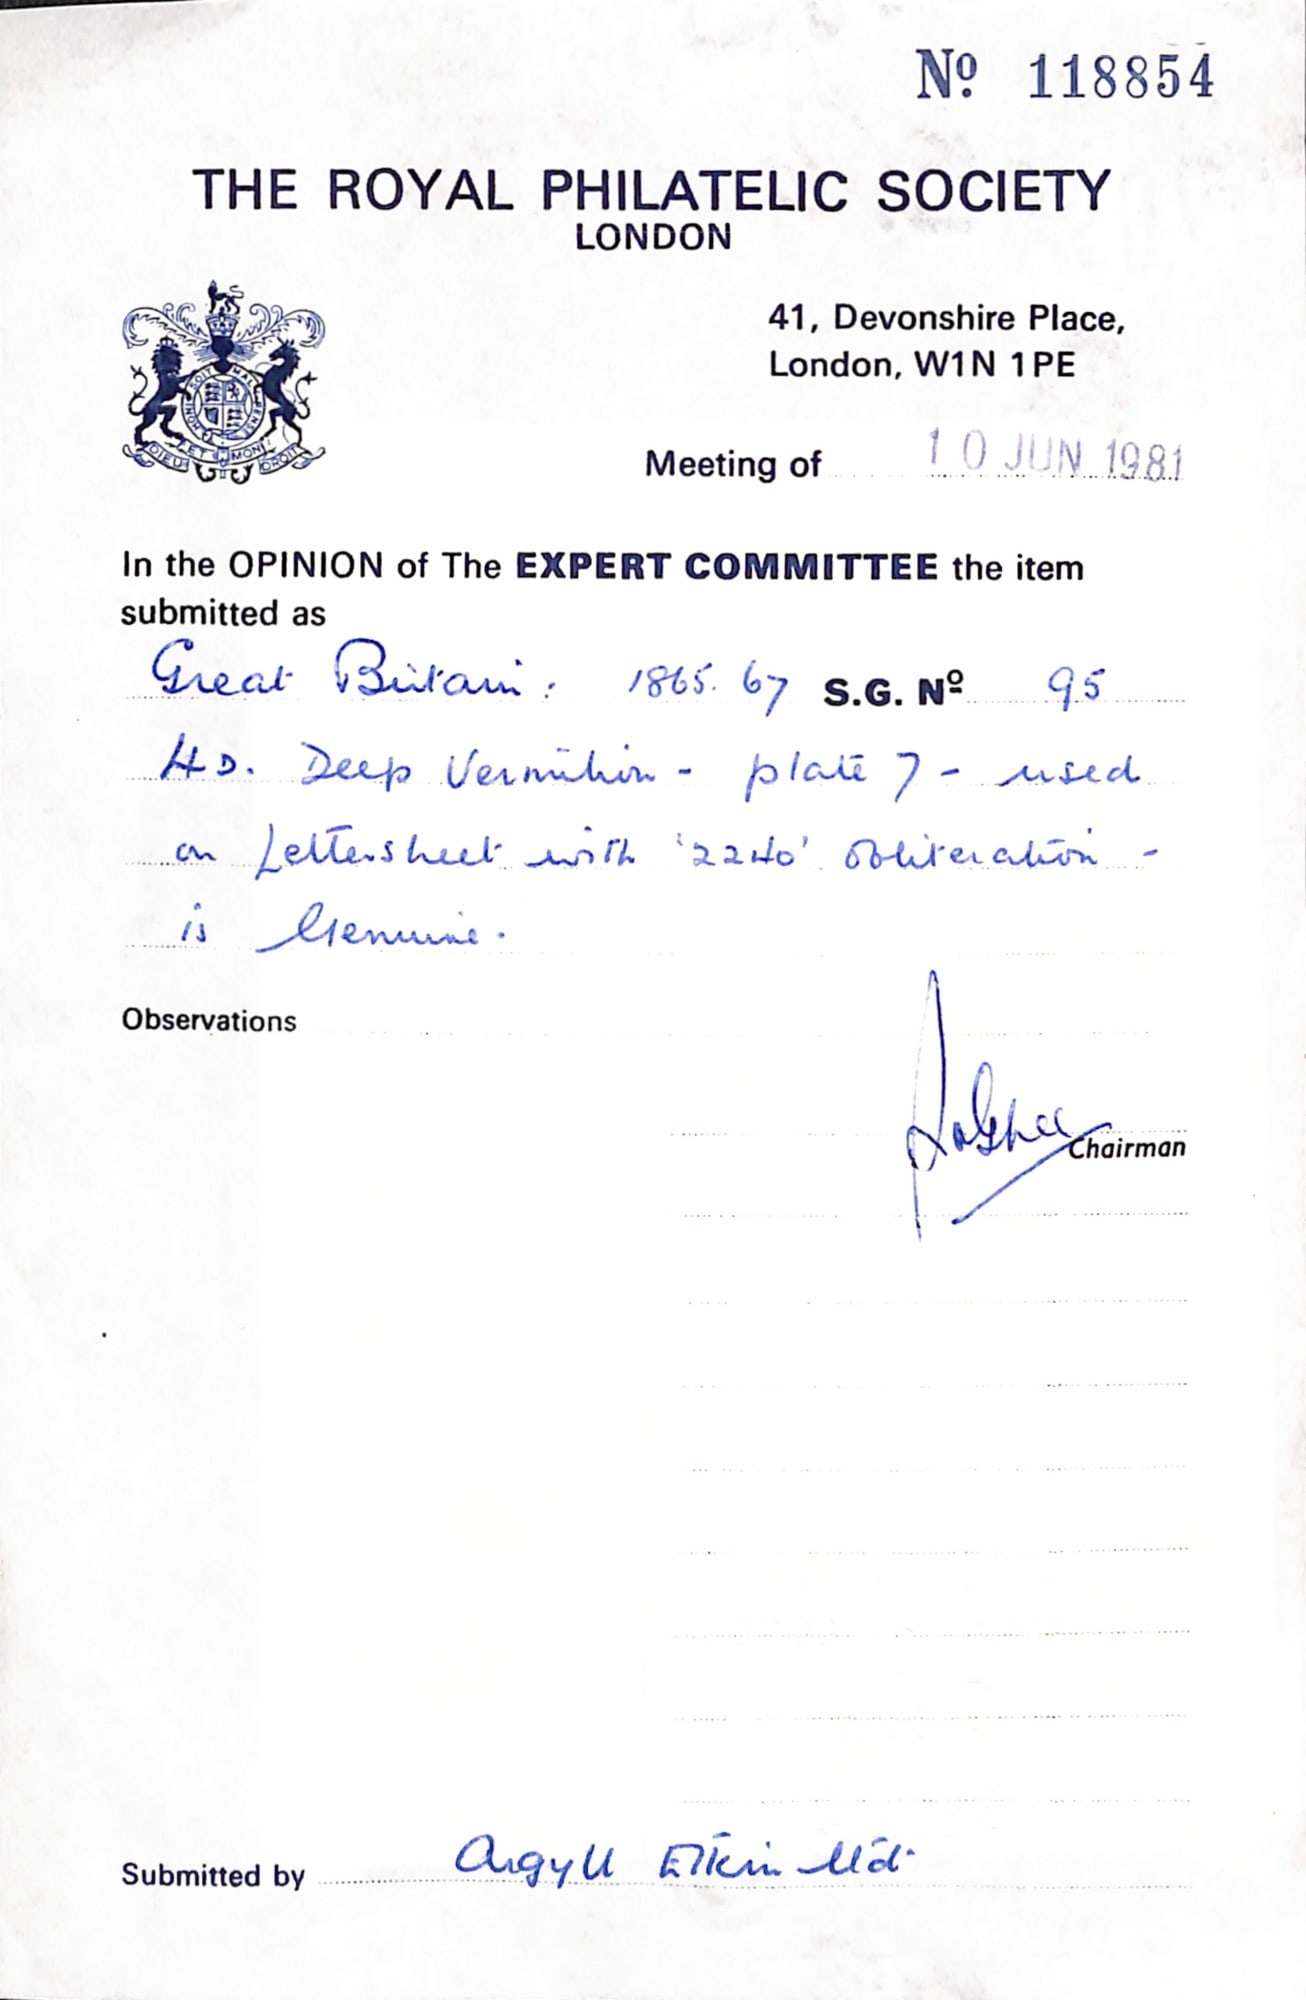 Nº 118854
THE ROYAL PHILATELIC SOCIETY
LONDON
41, Devonshire Place,
London, W1N 1PE
SOIT MAL Y PENSE HONI
DIEU ET MON DROIT
Meeting of 10 JUN 1981
In the OPINION of The EXPERT COMMITTEE the item
submitted as
Great Britain: 1865.67 S.G. Nº 95
4D. Deep Vermilion - plate 7 - used
on Lettersheet with '2240' obliteration -
is Genuine.
Observations
Chairman
Submitted by Argyll Etkin Ltd.